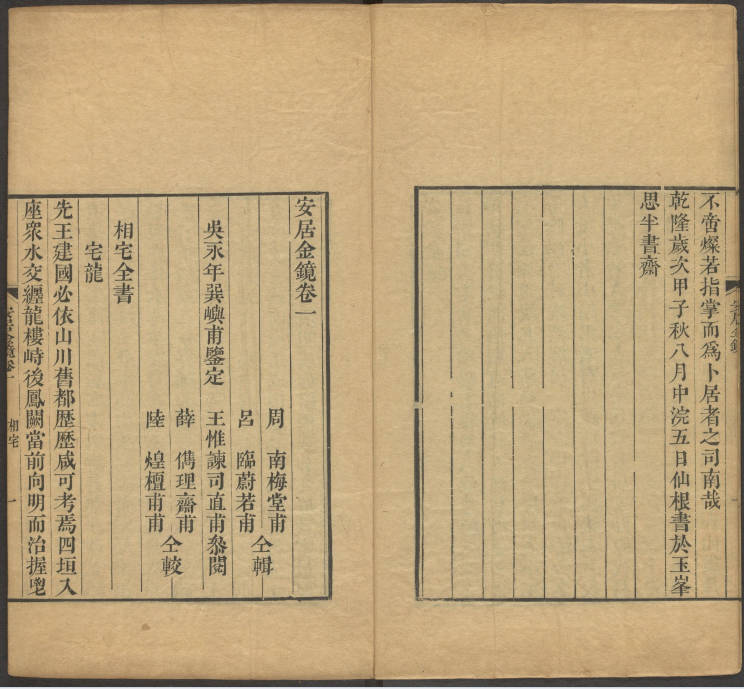 不啻燦若指掌而爲卜居者之司南哉
乾隆歲次甲子秋八月中浣五日仙根書於玉峯
思半書齋
安居金鏡卷一
周 南梅堂甫
呂 臨蔚若甫 仝輯
吳永年巽嶼甫鑒定 王惟諫司直甫叅閱
薛 儁理齋甫
陸 煌檀甫甫 仝較
相宅全書
宅龍
先王建國必依山川舊都歷歷咸可考焉四垣入
座衆水交纏龍樓峙後鳳闕當前向明而治握
安居金鏡卷一 相宅 一